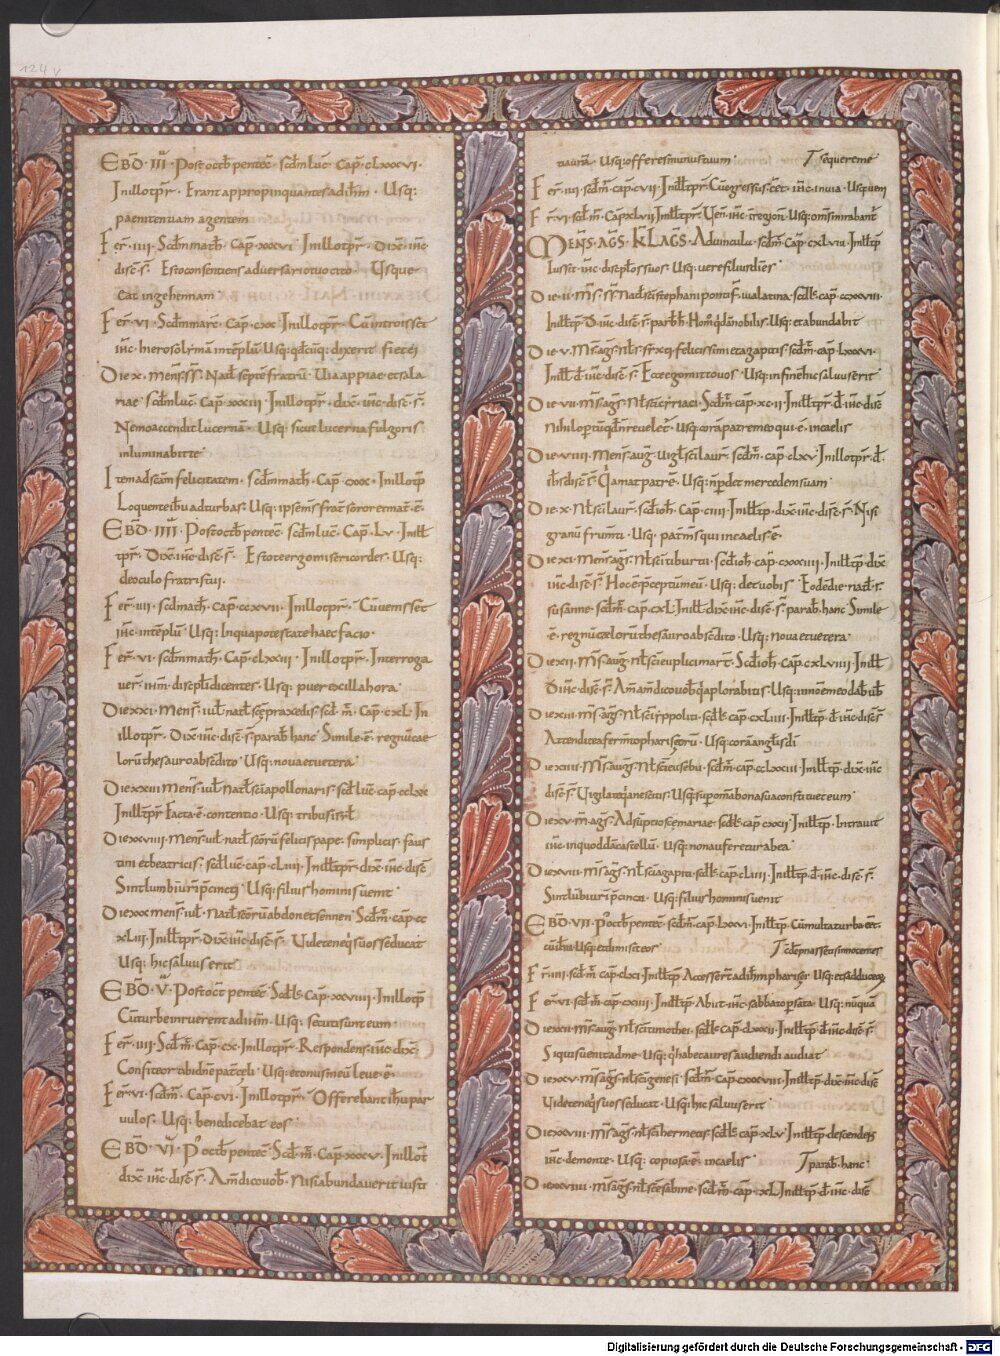 124 v
EBD̄ · III · Post oct̄b pentec̄ · Scdm̄ luc̄ · Cap̄ · cLxxxvi ·
Jn illo tp̄r · Erant appropinquantes ad ih̄m · Usq:
paenitentiam agentem
Fer̄ · IIII · Scdm̄ math̄ · Cap̄ · xxxvi · Jn illo tp̄r · Dix̄ · ih̄c
disc̄ s̄ · Esto consentiens adversario tuo cito · Usque
eat in gehennam
Fer̄ · VI · Scdm̄ marc̄ · Cap̄ · cxx · Jn illo tp̄r · Cū introisset
ih̄c hierosolỳmā in tēplū · Usq: qdc̄uq: dixerit fiet ei
Die x · mens̄ · s̄s̄ · Nat̄ septē fratrū · Via appiae et sala
riae · scdm̄ luc̄ · Cap̄ · xxxiii · Jn illo tp̄r · dix̄ · ih̄c · disc̄ · s̄ ·
Nemo accendit lucernā · Usq: sicut lucerna fulgoris
inluminabit te
Item ad scām felicitatem · scdm̄ math̄ · Cap̄ · cxxx · Jn illo tp̄
Loquente ih̄u ad turbas · Usq: ipse m̄s frat̄ soror et mat̄ · ē ·
EBD̄ · IIII · Post oct̄b pentec̄ · scdm̄ luc̄ · Cap̄ · Lv · Jn ill
tp̄r · Dix̄ · ih̄c · disc̄ · s̄ · Estote ergo misericordes · Usq:
de oculo fratris tui ·
Fer̄ · IIII · scd̄ math̄ · Cap̄ · ccxvii · Jn illo tp̄r · Cū venisset
ih̄c · in tēplū · Usq: In qua potestate haec facio ·
Fer̄ · VI · scdm̄ math̄ · Cap̄ · cLxxiii · Jn illo tp̄r · Interroga
ver̄ · ih̄m · discip̄li dicentes · Usq: puer ex illa hora ·
Die xxi · Mens̄ · iul̄ · nat̄ scē praxedis · scd̄ · m̄ · Cap̄ · cxL · Jn
illo tp̄r · Dix̄ · ih̄c · disc̄ · s̄ · parab̄ hanc · Simile · ē · regnū cae
lorū thesauro abscdito · Usq: nova et vetera ·
Die xxiii · Mens̄ · iul̄ · Nat̄ scī apollonaris · scd̄ luc̄ · cap̄ · ccLxx
Jn ill tp̄r · Facta · ē · contentio · Usq: tribus isr̄l
Die xxviiii · Mens̄ · iul̄ · nat̄ scōrū felicis pape · simplicii · faus
tini et beatricis · scd̄ luc̄ · cap̄ · cLiiii · Jn ill tp̄r · dix̄ · ih̄c · disc̄
Sint lumbi ur̄i p̄cincti · Usq: filius hominis veniet ·
Die xxx mens̄ · iul̄ · Nat̄ scōrū abdonet sennen · Scdm̄ · cap̄ · cc
xLiii · Jn ill tp̄r · Dix̄ · ih̄c · disc̄ · s̄ · Videte neq̄s vos seducat
Usq: hic salvus erit
EBD̄ · V · Post oct̄ pentec̄ · Scd̄ L · Cap̄ · xxviiii · Jn illo tp̄
Cū turbe inruerent ad ih̄m · Usq: secuti sunt eum ·
Fer̄ · IIII · Scd̄ m̄ · Cap̄ · cx · Jn illo tp̄r · Respondens · ih̄c · dix̄ ·
Confiteor tibi dn̄e pat̄ celi · Usq: et onus meū leve · ē ·
Fer̄ · VI · scdm̄ · Cap̄ · cvi · Jn illo tp̄r · Offerebant ih̄u par
vulos · Usq: benedicebat eos
EBD̄ · VI · Post oct̄b pentec̄ · Scd̄ · m̄ · Cap̄ · xxxv · Jn illo t̄
dix̄ · ih̄c · disc̄ · s̄ · Am̄ dico vob̄ · Nisi abundaverit iusti
taurā · Usq: offeres munus tuum · T̄ sequere me
Fer̄ · IIII · scdm̄ · cap̄ · cvii · Jn ill tp̄r · Cū egressus · cēt · ih̄c · in via · Usq: veni
Fer̄ · VI · scd̄ · m̄ · Cap̄ · xLvii · Jn ill tp̄r · Ven̄ · ih̄c · tregion̄ · Usq: oms̄ mirabant̄
MENS̄ · AGS̄ · KL AGS̄ · Ad vincula · scdm̄ · Cap̄ · cxLvii · Jn ill tp̄
Iussit · ih̄c · discip̄los suos · Usq: vere filius dī es ·
Die · ii · m̄s · s̄s · Nat̄ scī stephani pontif̄ · via latina · scd̄ L · cap̄ · ccxxviii ·
Jn ill tp̄ · d̄ · ih̄c · disc̄ · s̄ · parb̄ h̄ · Homo q̄dā nobilis · Usq: et abundabit
Die · v · m̄s ags̄ · nt̄ s̄ · sīxti felicissimi et agapitis · scdm̄ · cap̄ · Lxxxvi ·
Jn ill · d̄ · ih̄c · disc̄ · s̄ · Ecce ego mitto vos · Usq: in fine hic salvus erit
Die · vii · m̄s ags̄ · Nt̄ scī cīriaci · Scdm̄ · cap̄ · xcii · Jn ill tp̄r · d̄ · ih̄c · disc̄
Nihil optū qd̄ n̄ revelet̄ · Usq: corā patre meo qui · ē · in caelis
Die · viiii · Mens̄ · auḡ · Uigl̄ scī laur̄ · scdm̄ · cap̄ · cLxv · Jn ill tp̄r · d̄ ·
ih̄s disc̄ s̄ · Qi amat patrē · Usq: n̄ pdet mercedem suam ·
Die · x · Nt̄ scī laur̄ · scd̄ ioh̄ · cap̄ · ciiii · Jn ill tp̄ · dix̄ · ih̄c · disc̄ · s̄ · Nisi
granū frum̄t · Usq · pat̄ m̄s qui in caelis · ē ·
Die xi · Mens̄ ags̄ · Nt̄ scī tiburtii · scd̄ ioh̄ · cap̄ · cxxxiiii · Jn ill tp̄ dix̄
ih̄c · disc̄ · s̄ · Hoc · ē · p̄ceptū meū · Usq: det vobis · Eodē die · nat̄ · s̄ ·
susanne · scdm̄ · cap̄ · cxL · Jn ill · dix̄ · ih̄c · disc̄ · s̄ · parab̄ · hanc Simile
· ē · regnū celorū thesauro abscdito · Usq: nova et vetera ·
Die xii · M̄s auḡ · nt̄ scī eupli cī mart̄ · Scd̄ ioh̄ · Cap̄ · cxLviiii · Jn ill
D̄ · ih̄c · disc̄ · s̄ · Am̄ am̄ dico vob̄ q̄a plorabitis · Usq: in noē meo dab̄ vb̄
Die xiii · m̄s ags̄ · nt̄ scī ýppoliti · scd̄ L · cap̄ · cxLiiii · Jn ill tp̄ · d̄ · ih̄c · disc̄ s̄
Attendite a ferm̄to pharisęorū · Usq: corā angl̄is dī
Die xiiii · M̄s auḡs · Nt̄ scī eusebii · scdm̄ · cap̄ · ccLxxiii · Jn ill tp̄ · dix̄ · ih̄c
disc̄ · s̄ · Vigilate q̄a nescitis · Usq: sup om̄a bona sua constituet eum ·
Die xv · m̄ ags̄ · Adsūptio sc̄e mariae · scd̄ L · cap̄ · cxxii · Jn ill tp̄ · Intravit
ih̄c · in quoddā castellū · Usq: non auferetur ab ea ·
Die xviii · m̄s ags̄ · Nt̄ scī agapiti · scd̄ L · cap̄ · cLiiii · Jn ill tp̄ · d̄ · ih̄c · disc̄ · s̄
Sint lūbi ur̄i p̄cincti · Usq: filius hominis veniet
EBD̄ · VII · Post oct̄b pentec̄ · scdm̄ · cap̄ · Lxxvi · Jn ill tp̄ · Cū multa turba eēt
cū ih̄u · Usq: et dimisit eos T̄ cdēpnassetis innocentes
Fer̄ · IIII · scd̄ m̄ · cap̄ · cLxi · Jn ill tp̄ · Accesser̄t ad ih̄m pharisęi · Usq: et sadduceoꝝ
Fer̄ · VI · scd̄ · m̄ · cap̄ · cxiiii · Jn ill tp̄ · Abiit · ih̄c · sabbato p sata · Usq: nūquā
Die xxii · m̄s auḡ · nt̄ scī timothei · scd̄ L · cap̄ · cLxxxii · Jn ill tp̄ · d̄ · ih̄c · disc̄ · s̄ ·
Si quis venit ad me · Usq: q̄ habet aures audiendi audiat
Die xxv · M̄s ags̄ · nt̄ scī genesi · scdm̄ · Cap̄ · cxxxviii · Jn ill tp̄ · dix̄ · ih̄c · disc̄
Videte neq̄s vos seducat · Usq: hic salvus erit
Die xxviii · m̄s ags̄ · nt̄ scī hermetis · scd̄ L · cap̄ · xLv · Jn ill tp̄ · descendēs
ih̄c · de monte · Usq: copiosa · ē · in caelis T̄ parab̄ · hanc ·
Die xxviiii · m̄s ags̄ · nt̄ scē sabine · scd̄ · m̄ · cap̄ · cxL Jn ill tp̄ · d̄ · ih̄c · disc̄
Digitalisierung gefördert durch die Deutsche Forschungsgemeinschaft - DFG